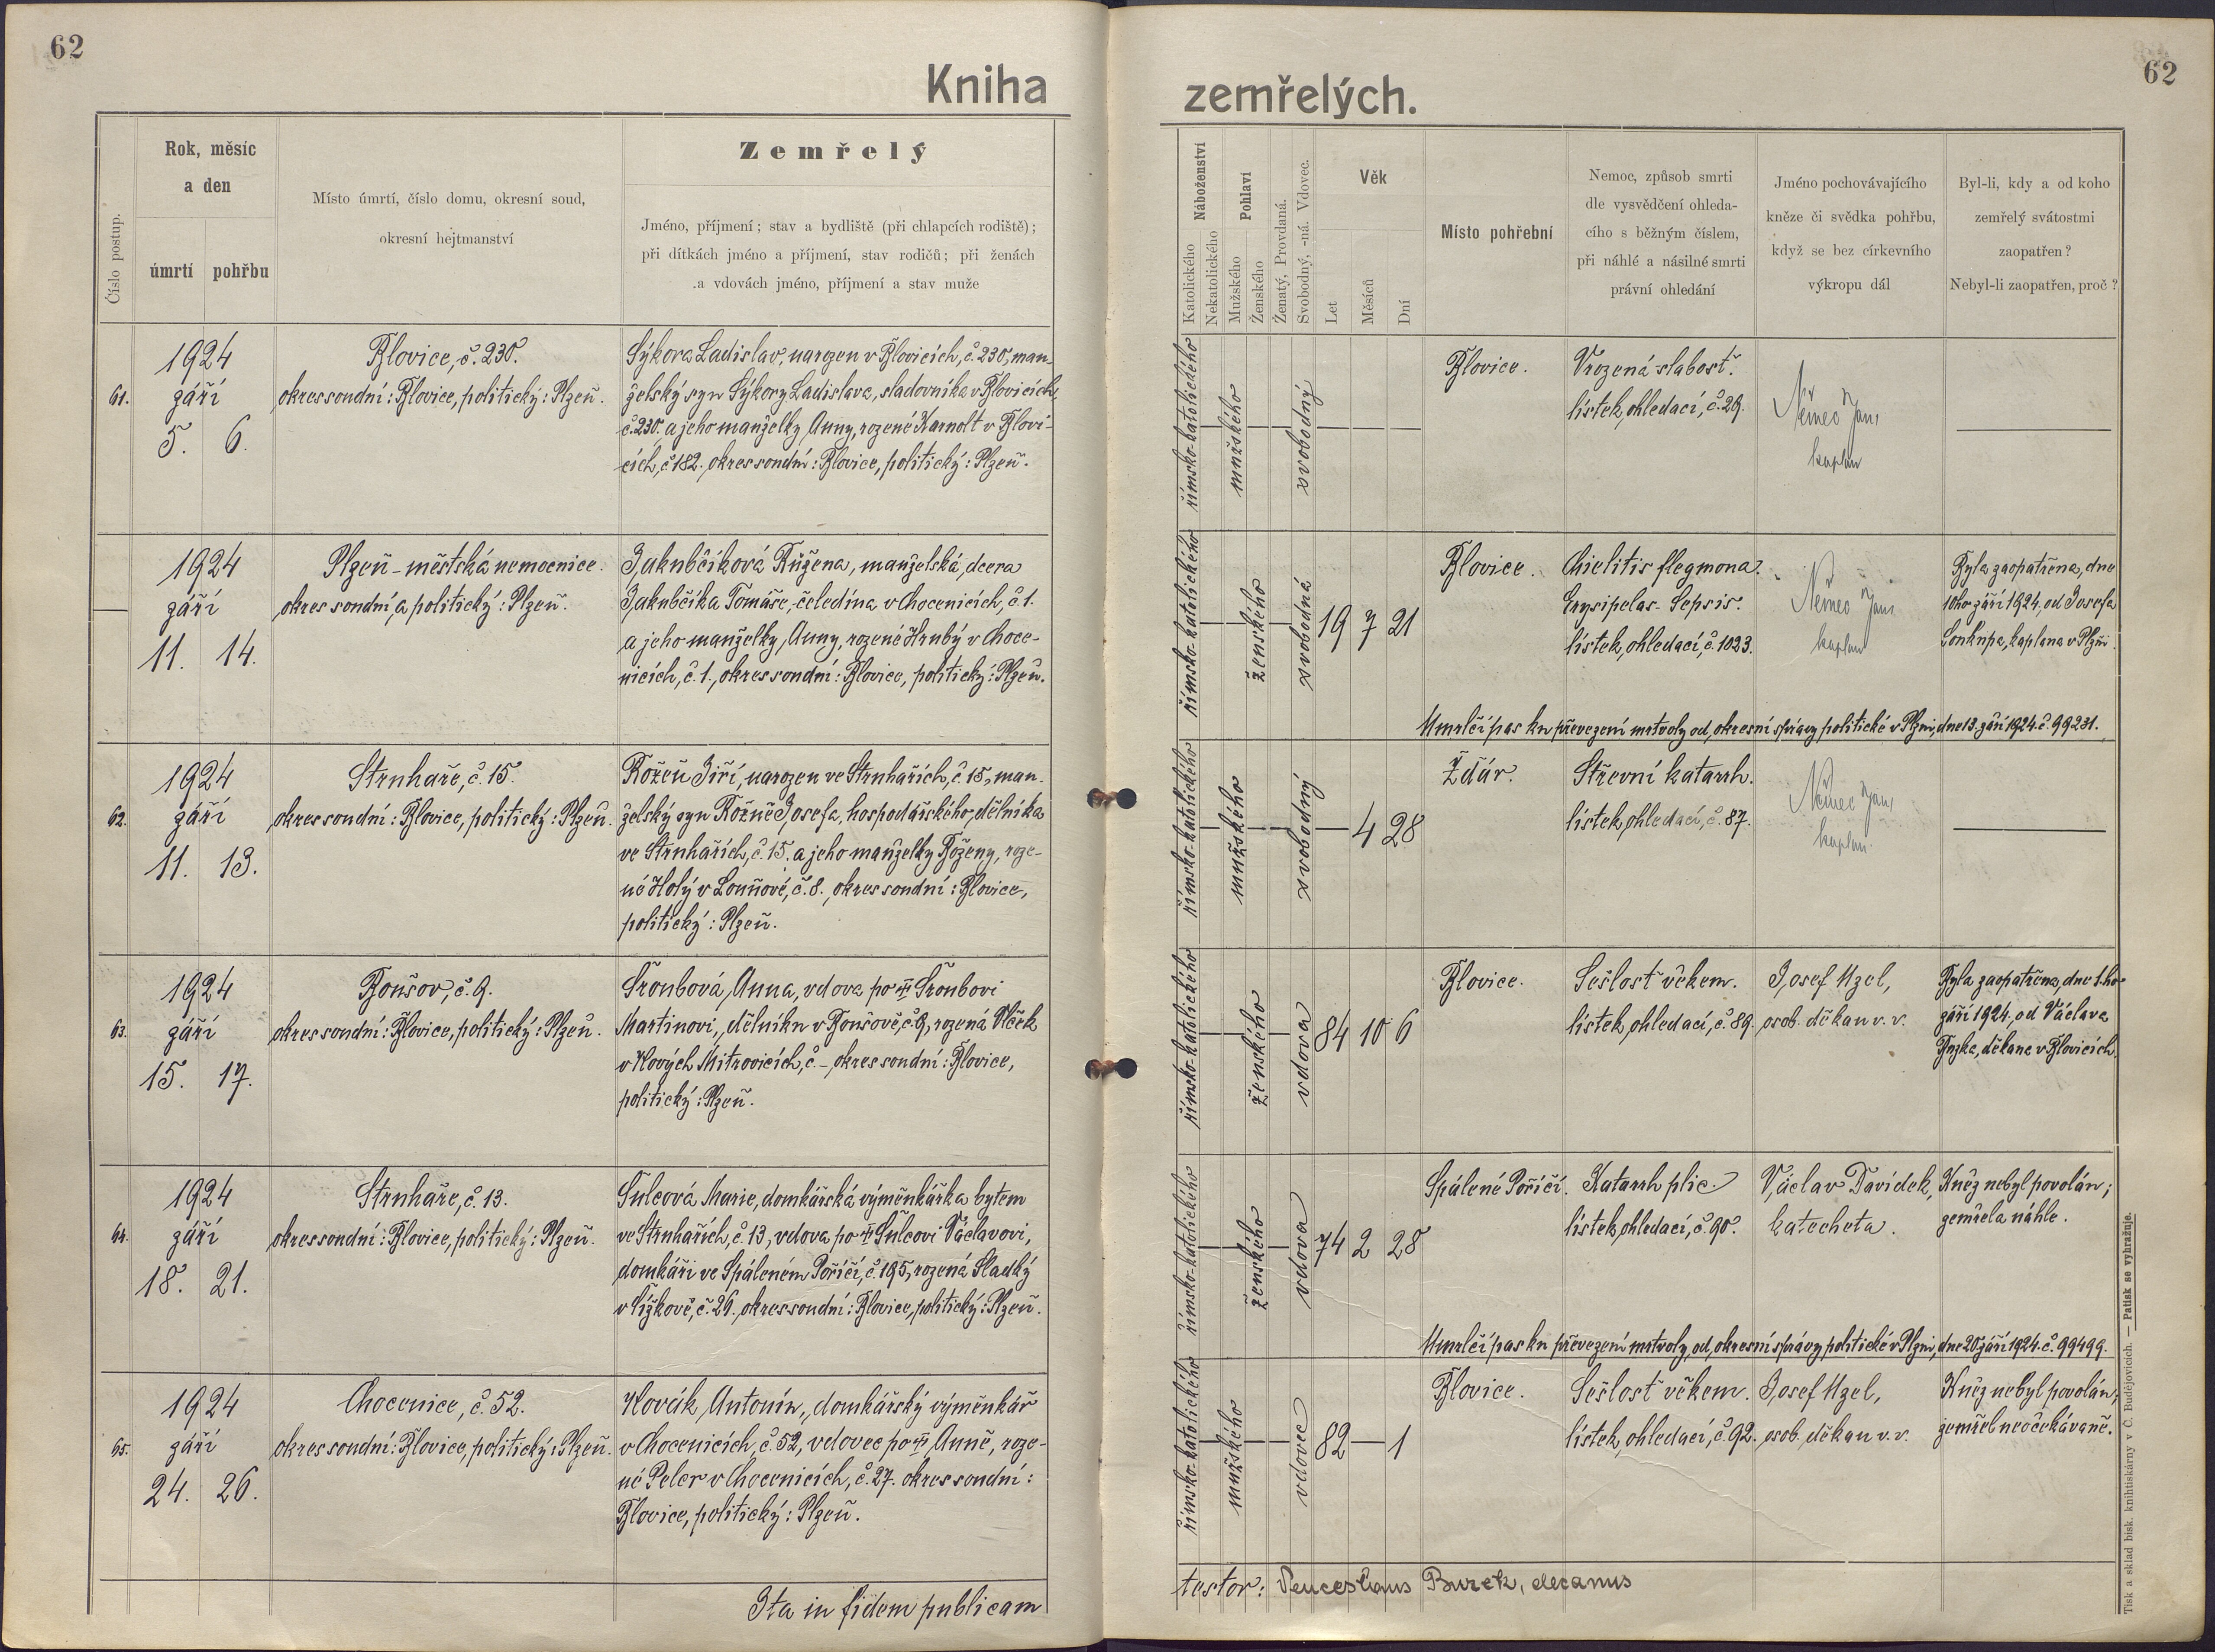 62
Kniha
Číslo postup.
Rok, měsíc
a den
úmrtí pohřbu
Místo úmrtí, číslo domu, okresní soud,
okresní hejtmanství
Zemřelý
Jméno, příjmení; stav a bydliště (při chlapcích rodiště);
při dítkách jméno a příjmení, stav rodičů; při ženách
a vdovách jméno, příjmení a stav muže
61.
1924
září
5. 6.
Blovice, č. 230.
okres soudní: Blovice, politický: Plzeň.
Sýkora Ladislav, narozen v Blovicích, č. 230, man-
želský syn Sýkory Ladislava, sladovníka v Blovicích,
č. 230. a jeho manželky Anny, rozené Karnolt v Blovi-
cích, č. 182. okres soudní: Blovice, politický: Plzeň.
1924
září
11. 14.
Plzeň - městská nemocnice.
okres soudní, a politický: Plzeň.
Jakubčíková Růžena, manželská, dcera
Jakubčíka Tomáše, čeledína v Chocenicích, č. 1.
a jeho manželky, Anny, rozené Hrubý v Choce-
nicích, č. 1., okres soudní: Blovice, politický: Plzeň.
62.
1924
září
11. 13.
Struhaře, č. 15.
okres soudní: Blovice, politický: Plzeň.
Rožeň Jiří, narozen ve Struhařích, č. 15, man-
želský syn Rožně Josefa, hospodářského dělníka
ve Struhařích, č. 15. a jeho manželky Boženy, roze-
né Holý v Louňové, č. 8., okres soudní: Blovice,
politický: Plzeň.
63.
1924
září
15. 17.
Boušov, č. 9.
okres soudní: Blovice, politický: Plzeň.
Šroubová, Anna, vdova po Šroubovi
Martinovi, dělníku v Boušově, č. 9, rozená Vlček
v Nových Mitrovicích, č. -, okres soudní: Blovice,
politický: Plzeň.
64.
1924
září
18. 21.
Struhaře, č. 13.
okres soudní: Blovice, politický: Plzeň.
Šulcová Marie, domkářská výměnkářka bytem
ve Struhařích, č. 13, vdova po Šulcovi Václavovi,
domkáři ve Spáleném Poříčí, č. 195, rozená Sladký
v Čížkově, č. 26., okres soudní: Blovice, politický: Plzeň.
65.
1924
září
24. 26.
Chocenice, č. 52.
okres soudní: Blovice, politický: Plzeň.
Novák, Antonín, domkářský výměnkář
v Chocenicích, č. 52, vdovec po Anně, roze-
né Pelcr v Chocenicích, č. 27. okres soudní:
Blovice, politický: Plzeň.
Ita in fidem publicam
62
zemřelých.
Náboženství
Katolického
Nekatolického
Pohlaví
Mužského
Ženského
Ženatý, Provdaná.
Svobodný, -ná. Vdovec.
Věk
Let
Měsíců
Dní
Místo pohřební
Nemoc, způsob smrti
dle vysvědčení ohleda-
cího s běžným číslem,
při náhlé a násilné smrti
právní ohledání
Jméno pochovávajícího
kněze či svědka pohřbu,
když se bez církevního
výkropu dál
Byl-li, kdy a od koho
zemřelý svátostmi
zaopatřen?
Nebyl-li zaopatřen, proč?
římsko-katolického
mužského
svobodný
Blovice.
Vrozená slabost.
lístek, ohledací, č. 29.
Němec Jan,
kaplan
římsko-katolického
ženského
svobodná
19 7 21
Blovice.
Chielitis flegmona.
Erysipelas. Sepsis.
lístek, ohledací, č. 1023.
Němec Jan,
kaplan
Byla zaopatřena, dne
10ho září 1924, od Josefa
Soukupa, kaplana v Plzni.
Umrlčí pas ku převezení mrtvoly od, okresní správy politické v Plzni, dne 13. září 1924. č. 99231.
římsko-katolického
mužského
svobodný
4 28
Ždár.
Střevní katarrh.
lístek, ohledací, č. 87.
Němec Jan,
kaplan.
římsko-katolického
ženského
vdova
84 10 6
Blovice.
Sešlost věkem.
lístek, ohledací, č. 89.
Josef Uzel,
osob. děkan v. v.
Byla zaopatřena, dne 1. ho
září 1924, od Václava
Burka, děkana v Blovicích.
římsko-katolického
ženského
vdova
74 2 28
Spálené Poříčí.
Katarrh plic.
lístek, ohledací, č. 90.
Václav Davídek,
katecheta.
Kněz nebyl povolán;
zemřela náhle.
Umrlčí pas ku převezení mrtvoly, od, okresní správy politické v Plzni, dne 20. září 1924. č. 99499.
římsko-katolického
mužského
vdovec
82 1
Blovice.
Sešlost věkem.
lístek, ohledací, č. 92.
Josef Uzel,
osob. děkan v. v.
Kněz nebyl povolán,
zemřel neočekávaně.
testor: Venceslaus Burek, decanus
Tisk a sklad bisk. knihtiskárny v Č. Budějovicích. — Patisk se vyhražuje.